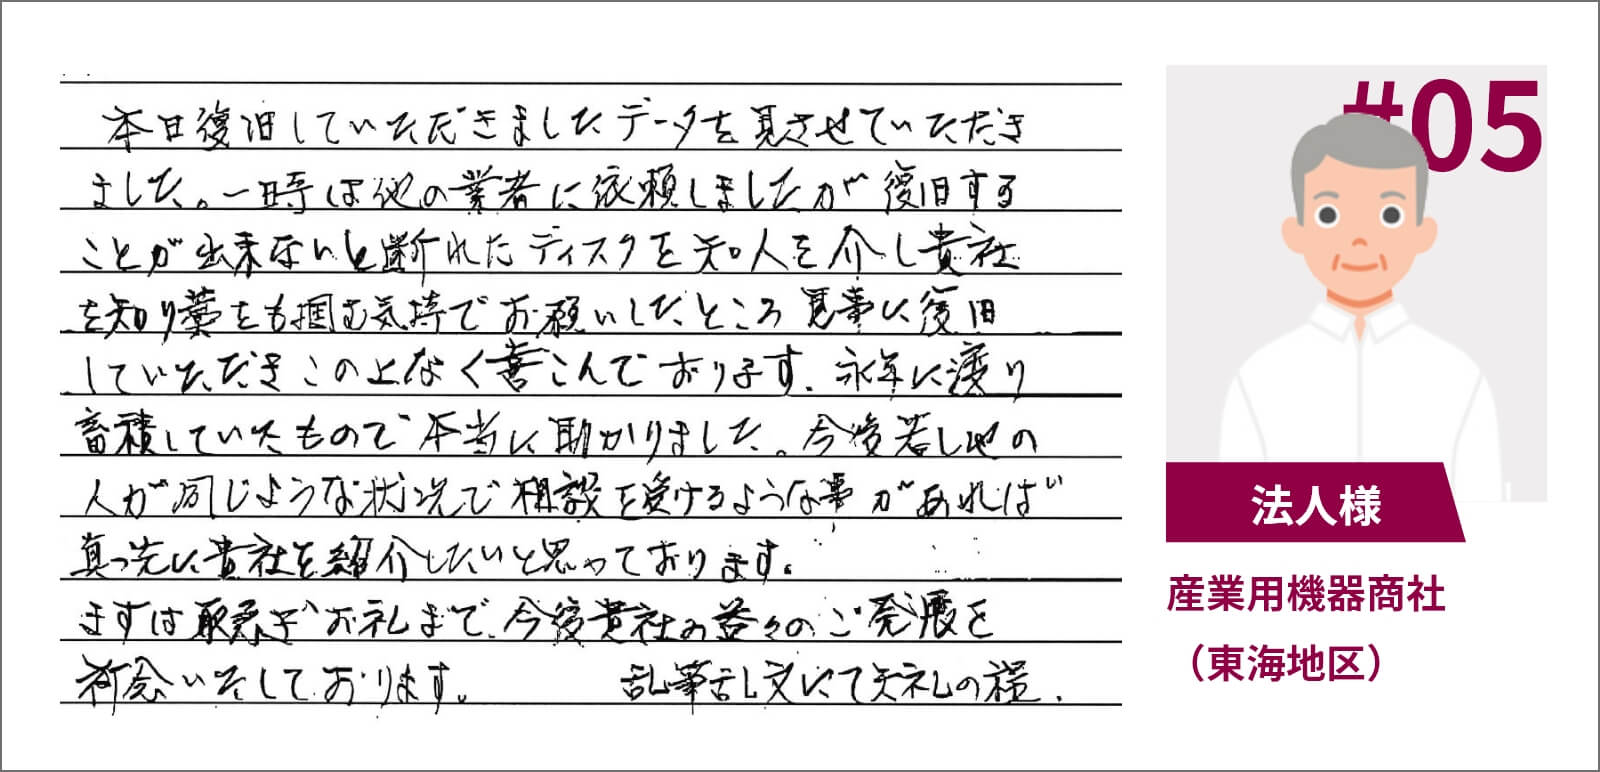 本日復旧していただきましたデータを見させていただき
ました。一時は他の業者に依頼しましたが復旧する
ことが出来ないと断れたディスクを知人を介し貴社
を知り藁をも掴む気持でお願いしたところ見事に復旧
していただきこの上なく喜こんでおります。永年に渡り
蓄積していたもので本当に助かりました。今後若し他の
人が同じような状況で相談を受けるような事があれば
真っ先に貴社を紹介したいと思っております。
まずは取急ぎお礼まで、今後貴社の益々のご発展を
祈念いたしております。 乱筆乱文にて失礼の様.
#05
法人様
産業用機器商社
（東海地区）